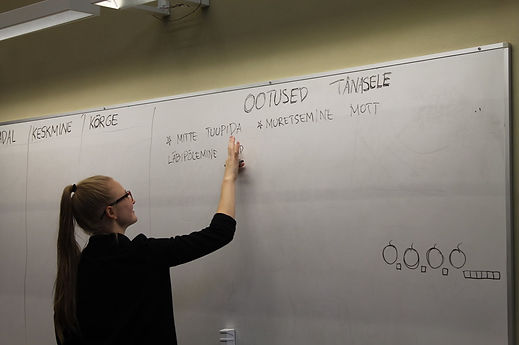 OOTUSED TÄNASELE
MADAL KESKMINE KÕRGE
* MITTE TUUPIDA * MURETSEMINE MOTT
LÄBIPÕLEMINE